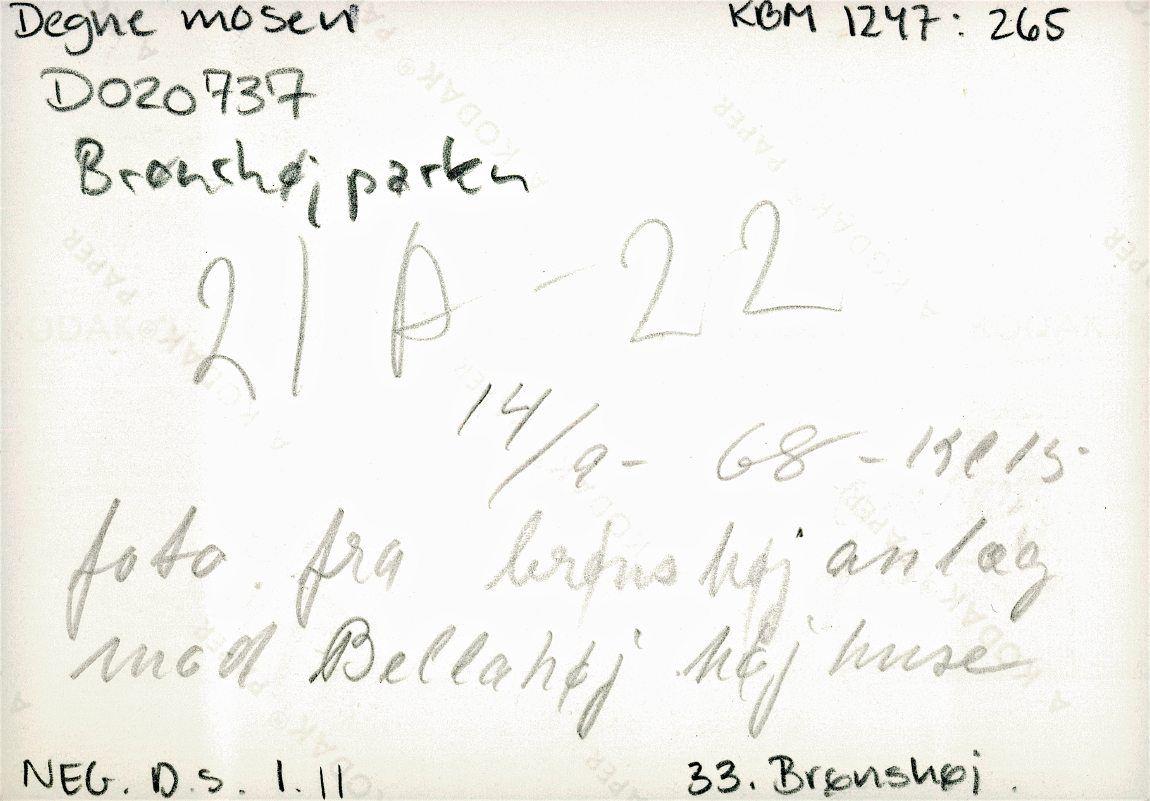 Degnemosen
KBM 1247: 265
D020737
Brønshøjparken
21 A - 22
14/9 - 68 - Kl 15.
foto fra brønshøj anlæg
mod Bellahøj højhuse
NEG. D.S. 1.11
33. Brønshøj.